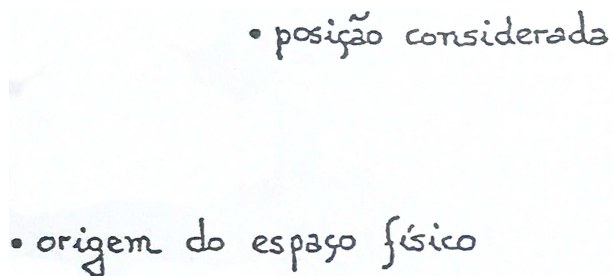 • posição considerada
• origem do espaço físico